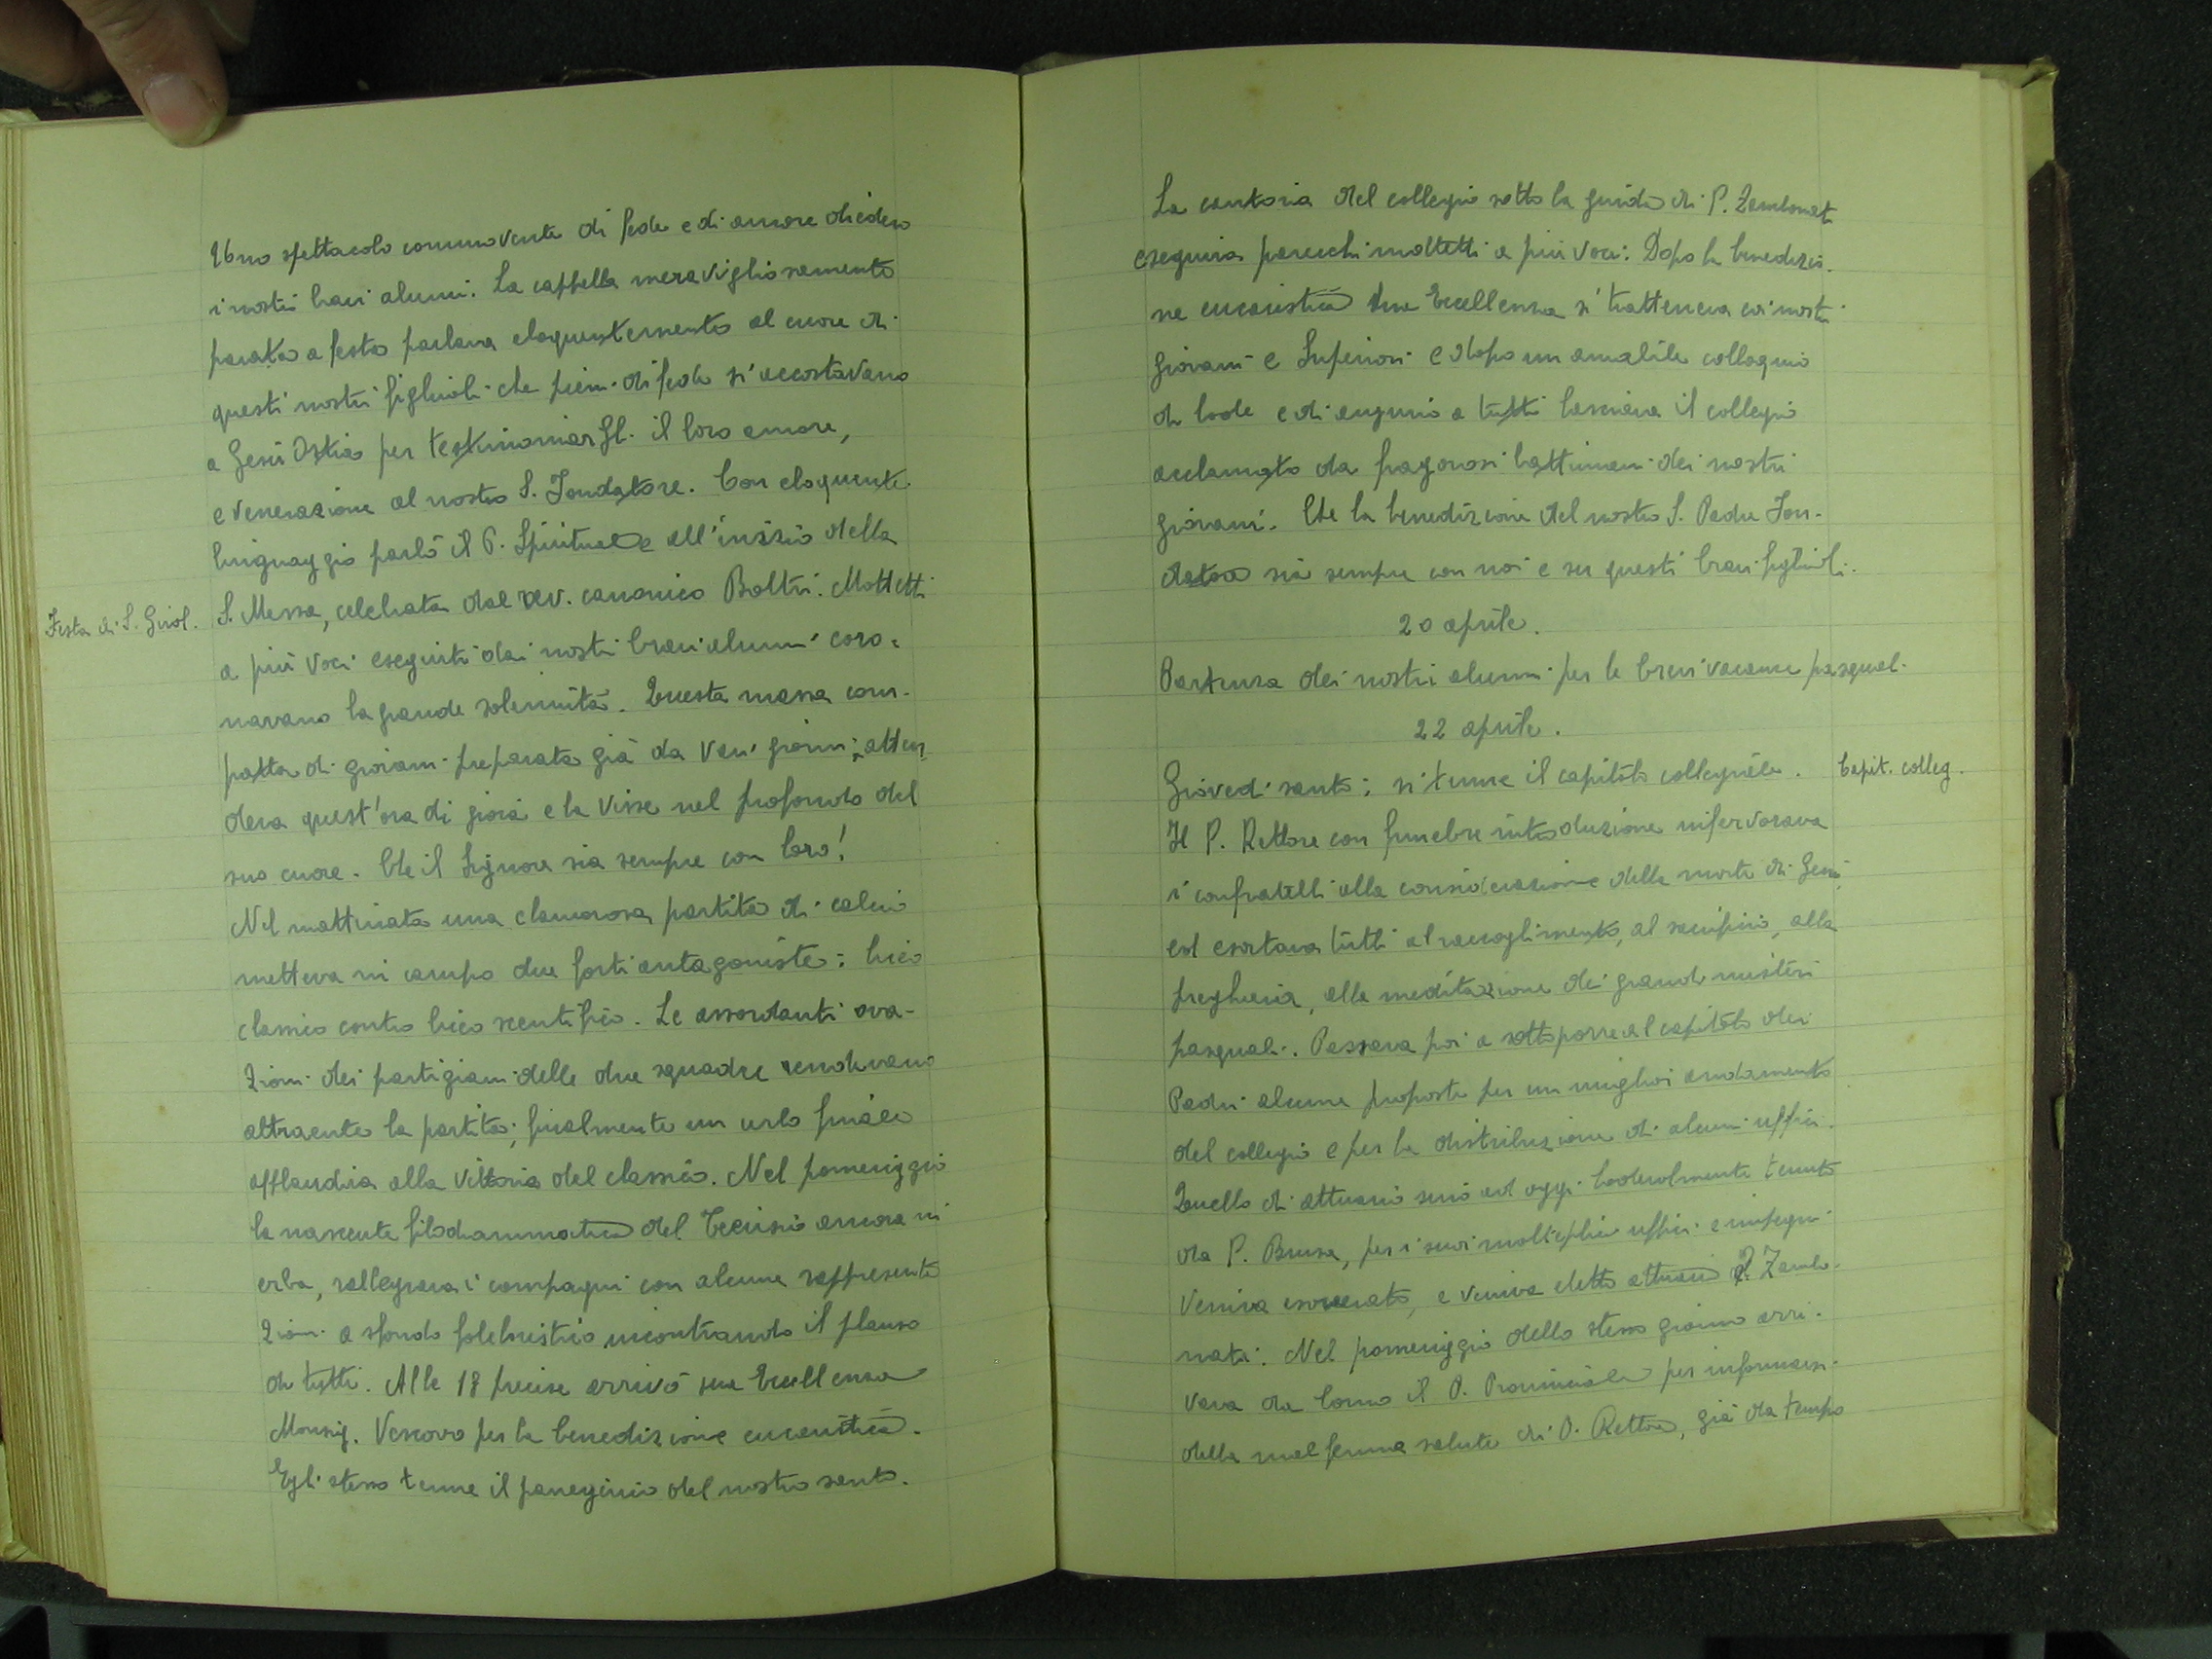 Uno spettacolo commovente di fede e di amore diedero
i nostri bravi alunni. La cappella meravigliosamente
parata a festa parlava eloquentemente al cuore di
questi nostri figliuoli che pieni di fede si accostavano
a Gesù Ostia per testimoniargli il loro amore,
e venerazione al nostro S. Fondatore. Con eloquente
linguaggio parlò il P. Spirituale all'inizio della
Festa di S. Girol.
S. Messa, celebrata dal rev. canonico Boltri. Mottetti
a più voci eseguiti dai nostri bravi alunni coro-
navano la grande solennità. Questa massa com-
patta di giovani preparata già da vari giorni, atten-
deva quest'ora di gioia e la visse nel profondo del
suo cuore. Che il Signore sia sempre con loro!
Nel mattinata una clamorosa partita di calcio
metteva in campo due forti antagoniste: liceo
classico contro liceo scentifico. Le assordanti ova-
zioni dei partigiani delle due squadre rendevano
attraente la partita; finalmente un urlo finale
applaudiva alla vittoria del classico. Nel pomeriggio
la nascente filodrammatica del Trevisio ancora in
erba, rallegrava i compagni con alcune rappresenta
zioni a sfondo folcloristico incontrando il plauso
di tutti. Alle 18 precise arrivò sua Eccellenza
Monsig. Vescovo per la benedizione eucaristica.
Egli stesso tenne il panegirico del nostro santo.
La cantoria del collegio sotto la guida di P. Zambonati
eseguiva parecchi mottetti a più voci. Dopo la benedizio-
ne eucaristica Sua Eccellenza si tratteneva coi nostri
giovani e Superiori e dopo un amabile colloquio
di lode e di augurio a tutti lasciava il collegio
acclamato da fragorosi battimani dei nostri
giovani. Che la benedizione del nostro S. Padre Fon-
datore sia sempre con noi e su questi bravi figlioli.
20 aprile.
Partenza dei nostri alunni per le brevi vacanze pasquali.
22 aprile.
Giovedì santo; si tenne il capitolo collegiale.
Capit. colleg.
Il P. Rettore con funebre introduzione infervorava
i confratelli alla considerazione della morte di Gesù
ed esortava tutti al raccoglimento, al sacrificio, alla
preghiera, alla meditazione dei grandi misteri
pasquali. Passava poi a sottoporre al capitolo dei
Padri alcune proposte per un miglior andamento
del collegio e per la distribuzione di alcuni uffici.
Quello di attuario sino ad oggi lodevolmente tenuto
da P. Brusa, per i suoi molteplici uffici e impegni
veniva esonerato, e veniva eletto attuario P. Zambo-
nati. Nel pomeriggio dello stesso giorno arri-
vava da Como il P. Provinciale per informarsi
della mal ferma salute di P. Rettore, già da tempo